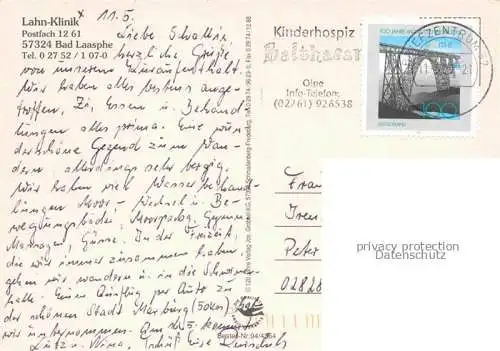 Lahn-Klinik
Postfach 12 61
57324 Bad Laasphe
Tel. 0 27 52 / 1 07-0
11.5.
Liebe
herzliche Grüße
von unserem Kuraufenthalt.
Wir haben alles bestens ange-
troffen, Zi, Essen u. Behand
lungen alles prima. Eine wun
derschöne Gegend zum Wan-
dern, allerdings sehr bergig.
Wir haben viel Wasserbehand-
lungen Moor- Wechsel u. Be-
wegungsbäder, Moorpackg,
Massagen, Güsse. In der Freizeit,
die wir immer zusammen haben
gehen wir wandern u. in die Schwimm-
halle. Einen Ausflug per Auto zu
der schönen Stadt Marburg (50km)
wir unternommen. Am
Lutz u.
Kinderhospiz
Balthasar
Olpe
Info-Telefon:
(02761) 926538
BRIEFZENTRUM 57
100
DEUTSCHLAND
Frau
Peter
02828
privacy protection
Datenschutz
Bestell-Nr. 94/4364